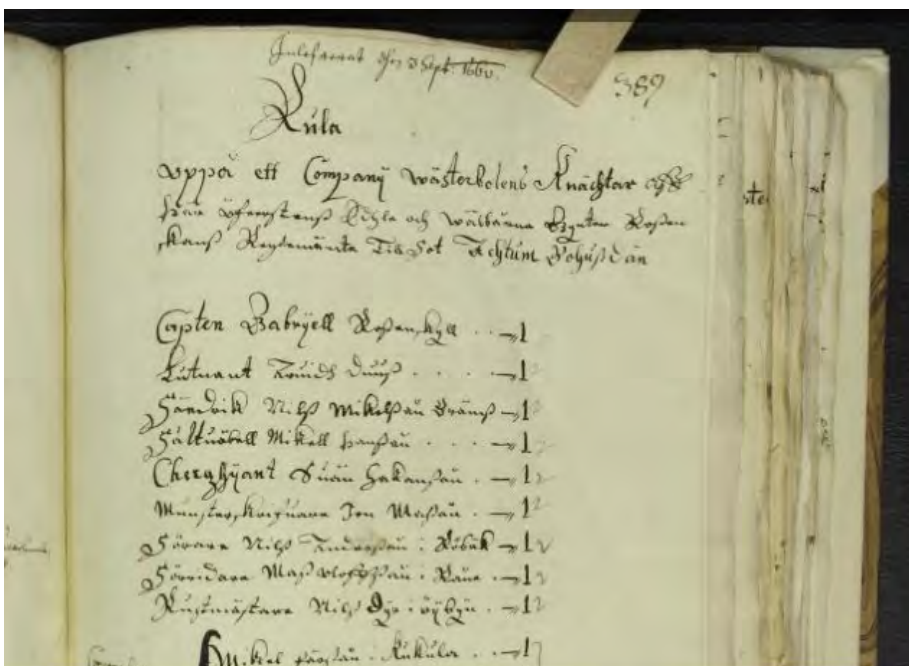 Inlefrerat den 3 Sept: 1660.
389
Rula
vppå ett Company wästerbotens Knächtar aff
här öfwerstens Edhle och wälbårne Rosen
skans Regemente Till fot
Capten Gabryell Rosenskyll .. 1
Lutnant Aruidh Duuß .... 1
Fändrik Nilß Mikelßån 1
Fältuäbell Mikell Hanßån ... 1
Cherghyant Suän Håkanßån . 1
Munsterskrifuare Jon Maßån . 1
Förare Nilß Andersån i Röbäk 1
Föridare Maß Olofßån i 1
Rustmästare Nilß Dyr i öÿbÿn . 1
Mikel Pärßån i Kukula .. 1